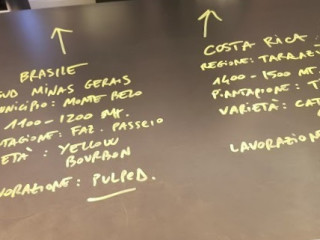 BRASILE
SUD MINAS GERAIS
MUNICIPIO: MONTE BELO
1100-1200 MT.
TAGIONE: FAZ. PASSEIO
ETÀ: YELLOW
BOURBON
VORAZIONE: PULPED.
COSTA RICA
REGIONE: TARRAZ
1400-1500 MT.
PIANTAGIONE: T
VARIETÀ: CAT
LAVORAZIONE